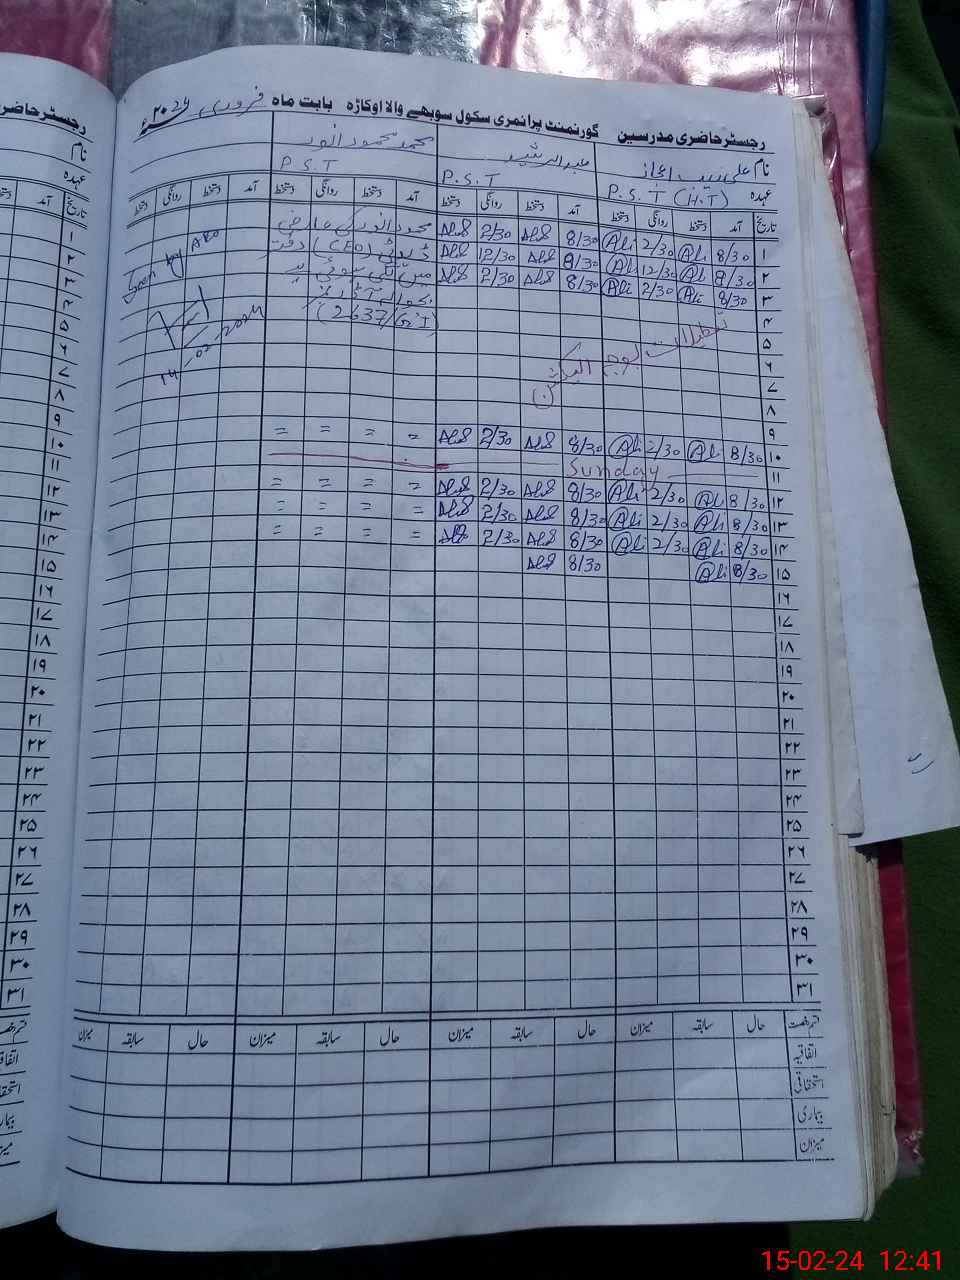 رجسٹر حاضری مدرسین گورنمنٹ پرائمری سکول سوبھے والا اوکاڑہ بابت ماہ فروری ۲۰24ء
نام علی زیب اعجاز عبدالرشید محمد محمود انور
عہدہ P.S.T (H.T) P.S.T P.S.T
تاریخ آمد دستخط روانگی دستخط آمد دستخط روانگی دستخط آمد دستخط روانگی دستخط آمد دستخط روانگی دستخط
۱ 8/30 Ali 2/30 Ali 8/30 2/30 محمود انور کی عارضی
۲ 8/30 Ali 12/30 Ali 8/30 12/30 ڈیوٹی (CEO) دفتر
۳ 8/30 Ali 2/30 Ali 8/30 2/30 میں لگی ہوئی ہے
بحوالہ آرڈر نمبر
(2637/G.I)
Seen by AEO
14-02-2024
۴
۵
۶
تعطیلات بوجہ الیکشن
۷
۸
۹
۱۰ 8/30 Ali 2/30 Ali 8/30 2/30 = = = =
۱۱ Sunday
۱۲ 8/30 Ali 2/30 Ali 8/30 2/30 = = = =
۱۳ 8/30 Ali 2/30 Ali 8/30 2/30 = = = =
۱۴ 8/30 Ali 2/30 Ali 8/30 2/30 = = = =
۱۵ 8/30 Ali 8/30
۱۶
۱۷
۱۸
۱۹
۲۰
۲۱
۲۲
۲۳
۲۴
۲۵
۲۶
۲۷
۲۸
۲۹
۳۰
۳۱
قسم رخصت حال سابقہ میزان حال سابقہ میزان حال سابقہ میزان حال سابقہ میزان
اتفاقیہ
استحقاقی
بیماری
میزان
رجسٹر حاضری
نام
عہدہ
تاریخ آمد دستخط
۱
۲
۳
۴
۵
۶
۷
۸
۹
۱۰
۱۱
۱۲
۱۳
۱۴
۱۵
۱۶
۱۷
۱۸
۱۹
۲۰
۲۱
۲۲
۲۳
۲۴
۲۵
۲۶
۲۷
۲۸
۲۹
۳۰
۳۱
15-02-24 12:41